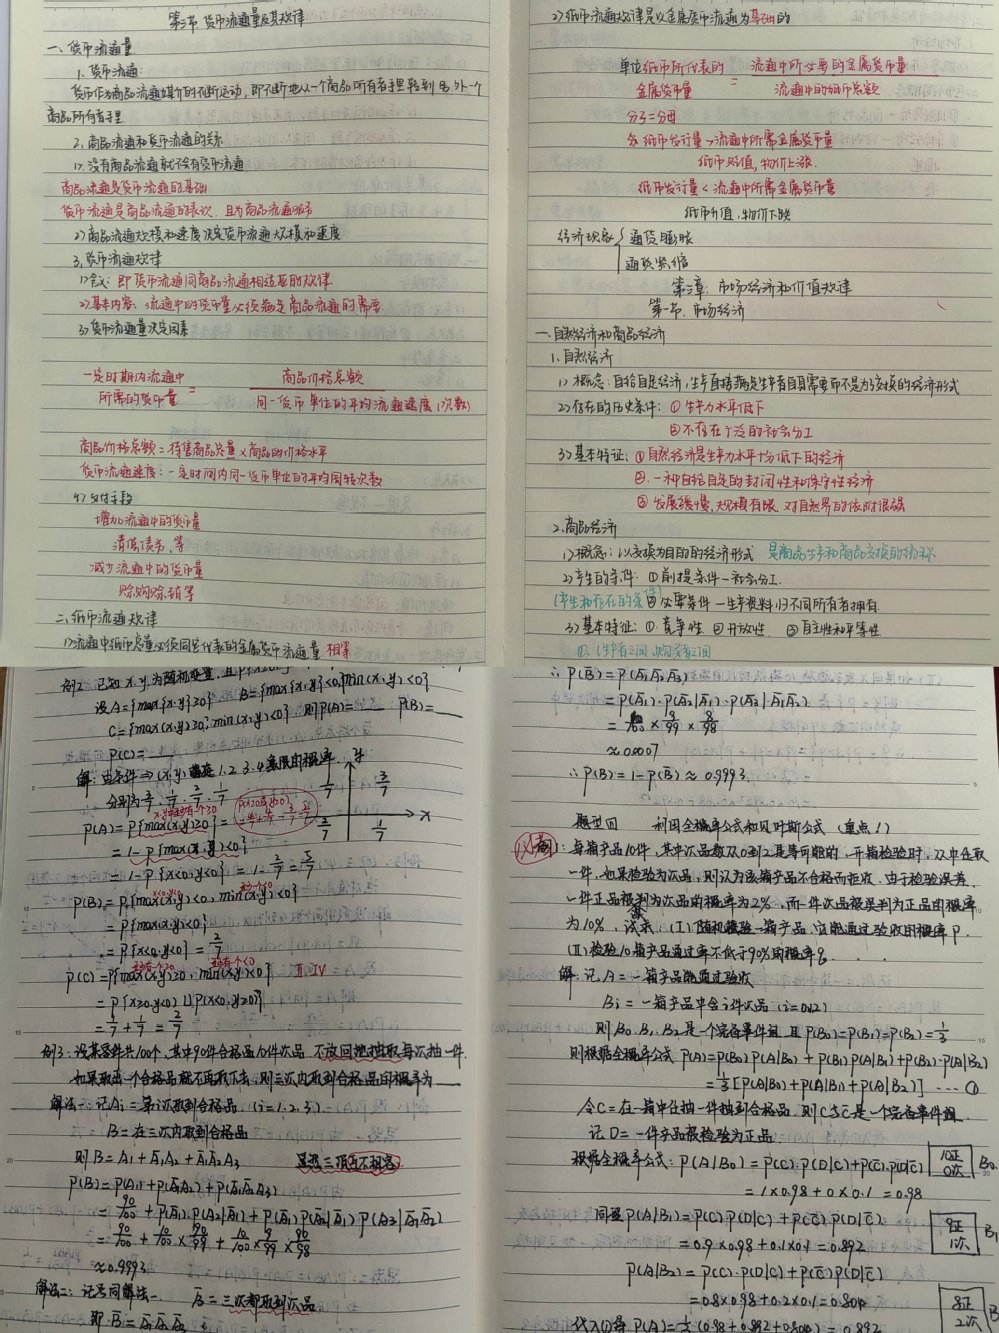 第三节 货币流通量及其规律
一、货币流通量
1. 货币流通:
货币作为商品流通媒介的不断运动，即不断地从一个商品所有者手里转到另外一个
商品所有者手里
2. 商品流通和货币流通的关系
1> 没有商品流通就不会有货币流通
商品流通是货币流通的基础
货币流通是商品流通的表次 且为商品流通服务
2> 商品流通规模和速度决定货币流通大规模和速度
3. 货币流通规律
1> 含义: 即货币流通同商品流通相适应的规律
2> 基本内容: 流通中的货币量必须满足商品流通的需要
3> 货币流通量决定因素
一定时期内流通中所需的货币量 = 商品价格总额 / 同一货币单位的平均流通速度(次数)
商品价格总额 = 待售商品总量 × 商品的价格水平
货币流通速度: 一定时间内同一货币单位的平均周转次数
4> 支付手段
增加流通中的货币量
清偿债务, 等
减少流通中的货币量
赊购赊销等
二、纸币流通规律
1> 流通中纸币总量必须同它代表的金属货币流通量 相等
2> 纸币流通规律是以金属货币流通为基础的
单位纸币所代表的金属货币量 = 流通中所必要的金属货币量 / 流通中的纸币总额
分子=分母
纸币发行量 > 流通中所需金属货币量
纸币贬值, 物价上涨.
纸币发行量 < 流通中所需金属货币量
纸币升值, 物价下跌
经济现象 { 通货膨胀
通货紧缩
第三章: 市场经济和价值规律
第一节. 市场经济
一、自然经济和商品经济
1. 自然经济
1> 概念: 自给自足经济, 生产直接满足生产者自身需要而不是为了交换的经济形式
2> 存在的历史条件: ① 生产力水平低下
② 不存在广泛的社会分工
3> 基本特征: ① 自然经济是生产力水平十分低下的经济
②. 一种自给自足的封闭性和保守性经济
③ 发展缓慢, 规模有限 对自然界的依附很强
2. 商品经济
1> 概念: 以交换为目的的经济形式 是商品生产和商品交换的总称
2> 产生的条件: ① 前提条件—社会分工.
(产生和存在的条件) ② 必要条件—生产资料归不同所有者拥有
3> 基本特征: ①. 竞争性 ② 开放性. ③ 自主性和平等性
①. (生产者之间, 购买者之间
例2 已知 x, y 为随机变量, 且
设A={max{x,y}≥0}, B={max{x,y}<0, min(x,y)<0}
C={max(x,y)≥0, min(x,y)<0} 则P(A)=____ P(B)=____
P(C)=____
解: 由条件 ⇒ (x,y) 落在 1.2.3.4 象限的概率
分别为 3/7, 1/7, 2/7, 1/7
x,y中至少有一个≥0
P(A) = P{max(x,y)≥0} =
= 1-P{max(x,y)<0}
= 1-P{x<0, y<0} = 1-2/7 = 5/7
P(B) = P{max(x,y)<0, min(x,y)<0}
= P{max(x,y)<0}
= P{x<0, y<0} = 2/7
至少有一个≥0 至少有一个<0
P(C) = P{max(x,y)≥0, min(x,y)<0} II, IV
= P{x≥0, y<0) ∪ P(x<0, y≥0)}
= 1/7 + 1/7 = 2/7
例3: 设某零件共100个, 其中90件合格品10件次品, 不放回地抽取每次抽一件.
如果取出一个合格品就不再取下去, 则三次内取到合格品的概率为____
解法一: 记Ai = 第i次取到合格品. (i=1.2.3)
B = 在三次内取到合格品
则 B = A₁ + A̅₁A₂ + A̅₁A̅₂A₃ 显然三项互不相容
P(B) = P(A₁) + P(A̅₁A₂) + P(A̅₁A̅₂A₃)
= 90/100 + P(A̅₁)·P(A₂|A̅₁) + P(A̅₁)P(A̅₂|A̅₁)P(A₃|A̅₁A̅₂)
= 90/100 + 10/100 × 90/99 + 10/100 × 9/99 × 90/98
≈ 0.9993
解法二: 记号同解法一. B̅ = 三次都取到次品
即 B̅ = A̅₁A̅₂A̅₃
∴ P(B̅) = P(A̅₁A̅₂A̅₃)
= P(A̅₁)·P(A̅₂|A̅₁)·P(A̅₃|A̅₁A̅₂)
= 10/100 × 9/99 × 8/98
≈ 0.0007
∴ P(B) = 1-P(B̅) ≈ 0.9993
题型四 利用全概率公式和贝叶斯公式 (重点!)
例1: 每箱产品10件, 其中次品数从0到2是等可能的, 开箱检验时, 从中任取
一件, 如果检验为次品, 则认为该箱产品不合格而拒收. 由于检验误差.
一件正品被判为次品的概率为2%, 而一件次品被误判为正品的概率
为10%, 试求: (I) 随机检验一箱产品, 它能通过验收的概率 P.
(II) 检验10箱产品通过率不低于90%的概率 q.
解: 记 A = 一箱产品能通过验收
Bi = 一箱产品中含i件次品 (i=0,1,2)
则B₀.B₁.B₂是一个完备事件组 且P(B₀)=P(B₁)=P(B₂)=1/3
则根据全概率公式 P(A)=P(B₀)P(A|B₀)+P(B₁)P(A|B₁)+P(B₂)·P(A|B₂)
= 1/3[P(A|B₀)+P(A|B₁)+P(A|B₂)] ··· ①
令C=在一箱中任抽一件抽到合格品. 则C与C̅是一个完备事件组
记D=一件产品被检验为正品
根据全概率公式: P(A|B₀) = P(C)·P(D|C)+P(C̅)·P(D|C̅) 10正 0次 B₀
= 1×0.98+0×0.1 = 0.98
同理P(A|B₁)=P(C)·P(D|C)+P(C̅)·P(D|C̅) 9正 1次 B₁
= 0.9×0.98+0.1×0.1 = 0.892
P(A|B₂)=P(C)·P(D|C)+P(C̅)P(D|C̅)
= 0.8×0.98+0.2×0.1 = 0.804 8正 2次 B
代入①得 P(A)=1/3(0.98+0.892+0.804) = 0.892